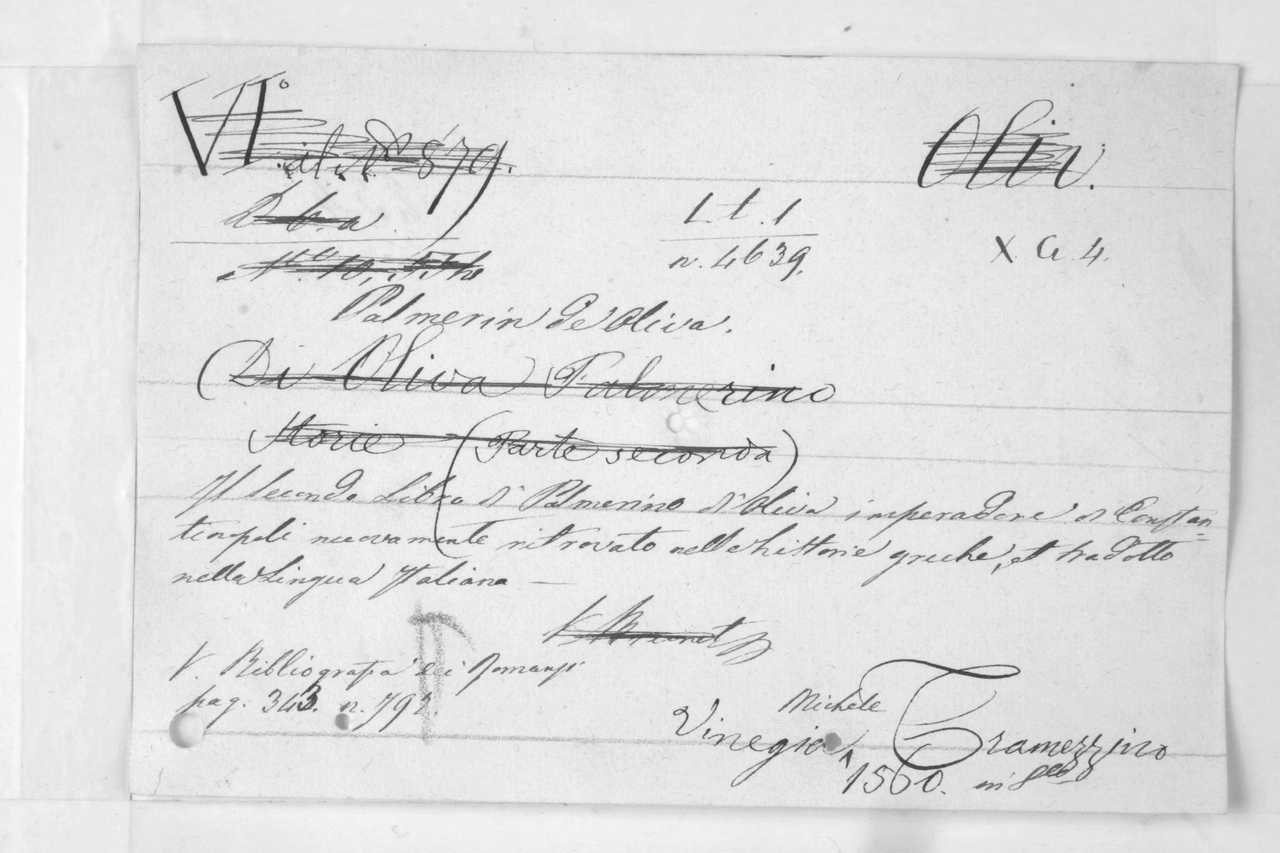 VI.°
879.
Oliv.
L. t. 1
n. 4639.
X G. 4.
Palmerin de Oliva.
(Di Oliva Palmerino
Storie (Parte seconda)
Il secondo Libro di Palmerino d'Oliva imperadore di Constan=
tinopoli nuovamente ritrovato nelle historie greche, et tradotto
nella Lingua Italiana —
V. Brunet
V. Bibliografia dei Romanzi
pag. 343. n. 792.
Michele
Vinegia Tramezzino
1560. in 8